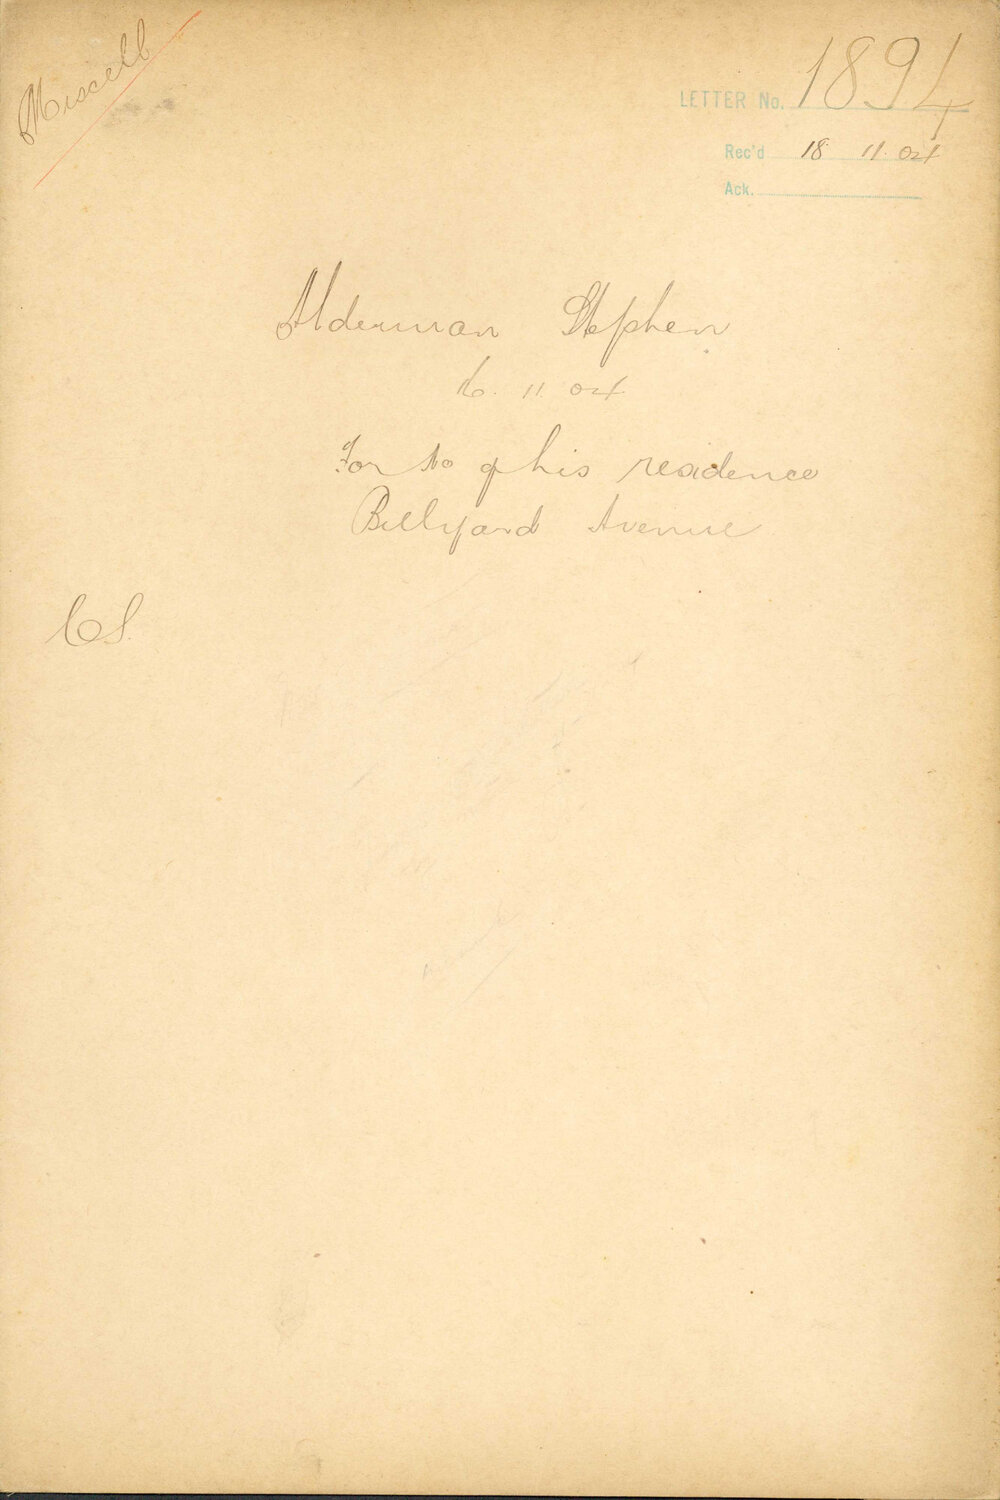 Miscell
LETTER No. 1894
Rec'd 18 11. 04
Ack.
Alderman Stephen
16. 11. 04
For No of his residence
Billyard Avenue
CS.